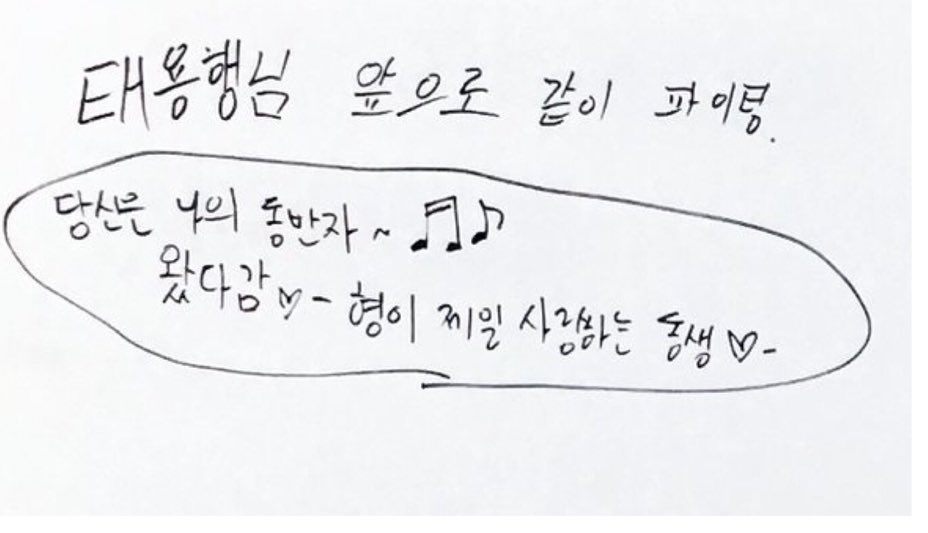 태용행님 앞으로 같이 파이텽.
당신은 나의 동반자~ 🎵♪
왔다감♡- 형이 제일 사랑하는 동생♡-